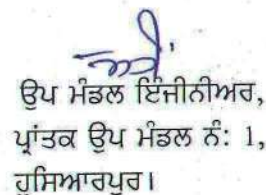 ਉਪ ਮੰਡਲ ਇੰਜੀਨੀਅਰ,
ਪ੍ਰਾਂਤਕ ਉਪ ਮੰਡਲ ਨੰ: 1,
ਹੁਸਿਆਰਪੁਰ।